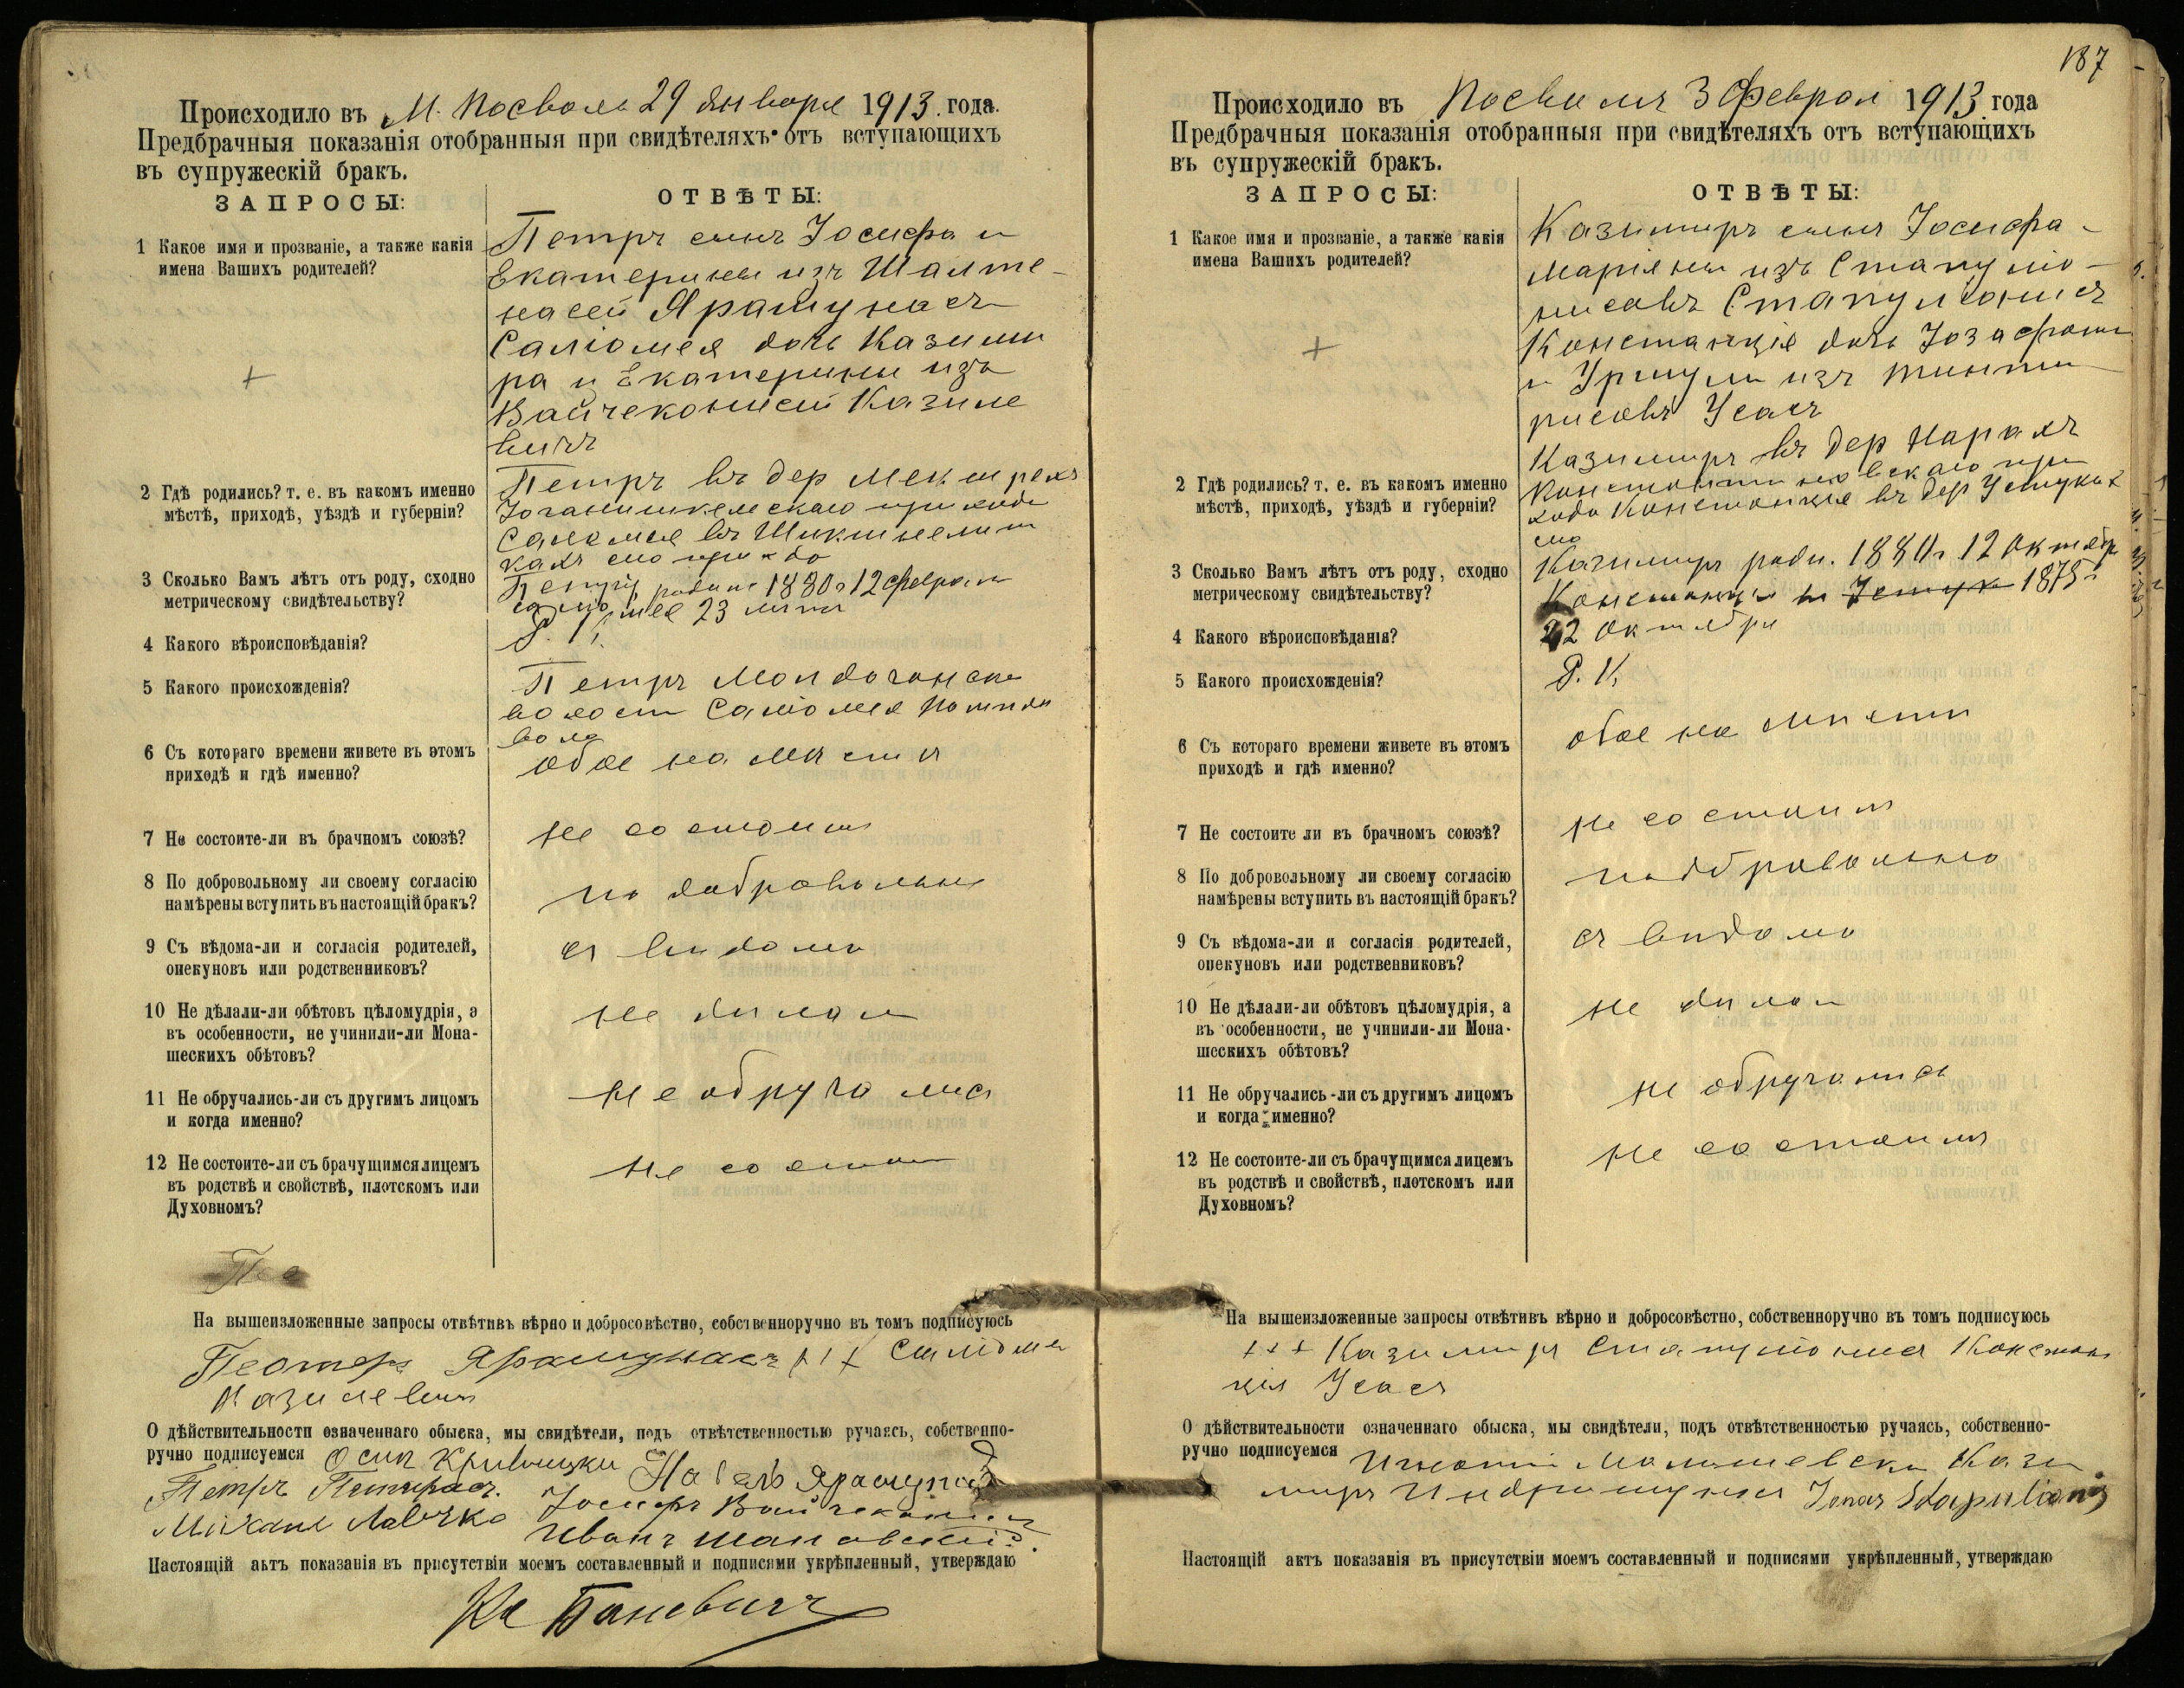 Происходило въ М. Посволь 29 Января 1913 года.
Предбрачныя показанія отобранныя при свидѣтеляхъ отъ вступающихъ
въ супружескій бракъ.
ЗАПРОСЫ:
ОТВѢТЫ:
1 Какое имя и прозваніе, а также какія
имена Вашихъ родителей?
Петръ сынъ Іосифа и
Екатерины изъ Шалте-
насей Ярашунасъ
Саліомея дочь Казими
ра и Екатерины изъ
Вайчеконисей Казиле
вичъ
2 Гдѣ родились? т. е. въ какомъ именно
мѣстѣ, приходѣ, уѣздѣ и губерніи?
Петръ въ дер
Іоганишкельскаго прихода
въ
3 Сколько Вамъ лѣтъ отъ роду, сходно
метрическому свидѣтельству?
Петръ родил 1880 г 12 Феврал
23
4 Какого вѣроисповѣданія?
Р. К.
5 Какого происхожденія?
Петръ
Саліомея
вол
6 Съ котораго времени живете въ этомъ
приходѣ и гдѣ именно?
обое на мѣстѣ
7 Не состоите-ли въ брачномъ союзѣ?
не состоим
8 По добровольному ли своему согласію
намѣрены вступить въ настоящій бракъ?
по добровольно
9 Съ вѣдома-ли и согласія родителей,
опекуновъ или родственниковъ?
съ видома
10 Не дѣлали-ли обѣтовъ цѣломудрія, а
въ особенности, не учинили-ли Мона-
шескихъ обѣтовъ?
не дилали
11 Не обручались-ли съ другимъ лицомъ
и когда именно?
не обручались
12 Не состоите-ли съ брачущимся лицемъ
въ родствѣ и свойствѣ, плотскомъ или
Духовномъ?
не состоим
На вышеизложенные запросы отвѣтивъ вѣрно и добросовѣстно, собственноручно въ томъ подписуюсь
Ярашунасъ +++ Саліомея
Казилевич
О дѣйствительности означеннаго обыска, мы свидѣтели, подъ отвѣтственностью ручаясь, собственно-
ручно подписуемся Осип Кривицки
Петръ Петрасъ. Іосифъ Вайчеконис
Иванъ Шановскій
Настоящій актъ показанія въ присутствіи моемъ составленный и подписями укрѣпленный, утверждаю
Кс Баневичъ
187
Происходило въ Посволѣ 3 Феврал 1913 года
Предбрачныя показанія отобранныя при свидѣтеляхъ отъ вступающихъ
въ супружескій бракъ.
ЗАПРОСЫ:
ОТВѢТЫ:
1 Какое имя и прозваніе, а также какія
имена Вашихъ родителей?
Казимиръ сынъ Іосифа -
Маріяны изъ Стапуліо-
нисовъ Стапуліонисъ
Констанція дочь Іозафата
и Уршули изъ
Усасъ
2 Гдѣ родились? т. е. въ какомъ именно
мѣстѣ, приходѣ, уѣздѣ и губерніи?
Казимиръ въ дер
Константиновскаго при
хода Констанція въ дер Устуках
3 Сколько Вамъ лѣтъ отъ роду, сходно
метрическому свидѣтельству?
Казимиръ роди. 12 Октябр
Констанція
22 Октября
4 Какого вѣроисповѣданія?
Р. К.
5 Какого происхожденія?
6 Съ котораго времени живете въ этомъ
приходѣ и гдѣ именно?
обое на мѣсти
7 Не состоите ли въ брачномъ союзѣ?
не состоим
8 По добровольному ли своему согласію
намѣрены вступить въ настоящій бракъ?
9 Съ вѣдома-ли и согласія родителей,
опекуновъ или родственниковъ?
съ видома
10 Не дѣлали-ли обѣтовъ цѣломудрія, а
въ особенности, не учинили-ли Мона-
шескихъ обѣтовъ?
не дилали
11 Не обручались-ли съ другимъ лицомъ
и когда именно?
не обручались
12 Не состоите-ли съ брачущимся лицемъ
въ родствѣ и свойствѣ, плотскомъ или
Духовномъ?
не состоимъ
На вышеизложенные запросы отвѣтивъ вѣрно и добросовѣстно, собственноручно въ томъ подписуюсь
+++ Казимиръ Стапуліонисъ Констан
ція Усасъ
О дѣйствительности означеннаго обыска, мы свидѣтели, подъ отвѣтственностью ручаясь, собственно-
ручно подписуемся Малишевски Кази
миръ Индришунас Stapulionis
Настоящій актъ показанія въ присутствіи моемъ составленный и подписями укрѣпленный, утверждаю